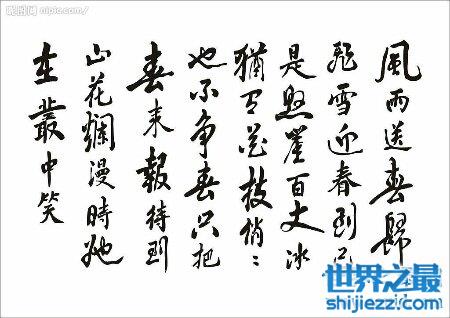 昵图网 nipic.com
風雨送春歸
飛雪迎春到已
是懸崖百丈冰
猶有花枝俏〻
也不争春只把
春来報待到
山花爛漫時她
在叢中笑
世界之最
shijiezz.com